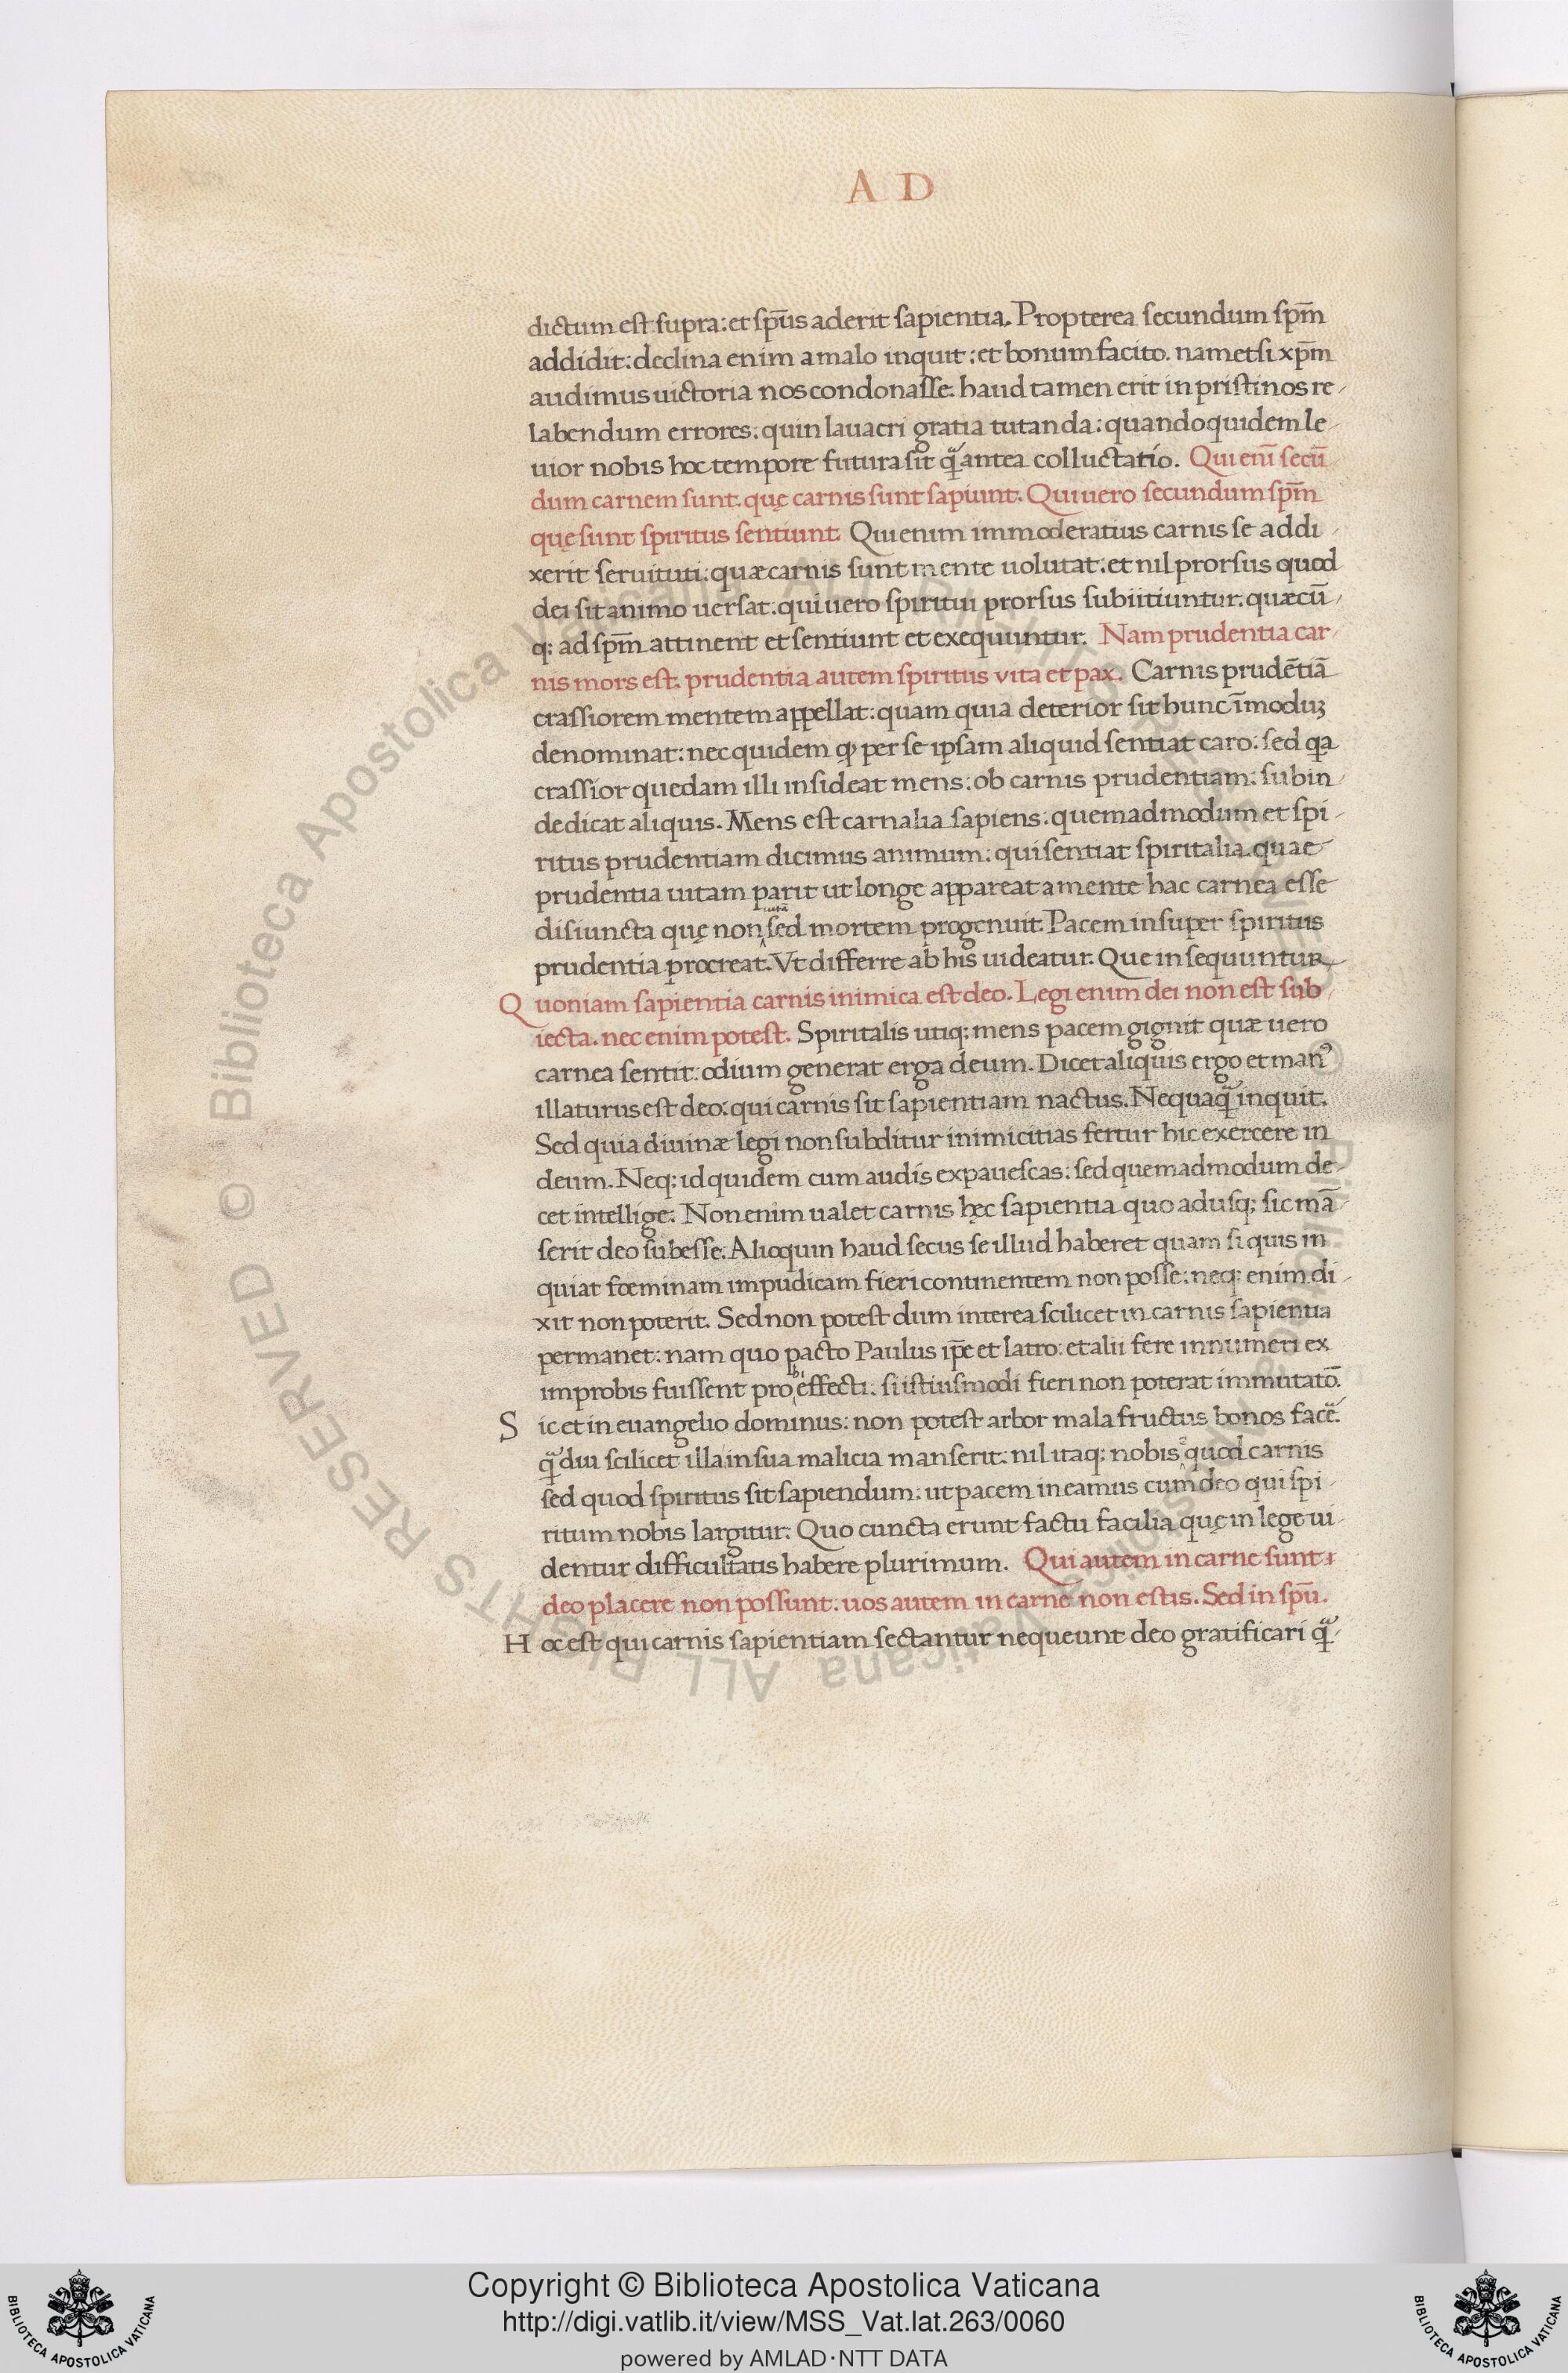 A D
dictum est supra: et sp̄us aderit sapientia. Propterea secundum sp̄m
addidit: declina enim a malo inquit: et bonum facito. nam etsi xp̄m
audimus uictoria nos condonasse. haud tamen erit in pristinos re-
labendum errores: quin lauacri gratia tutanda: quandoquidem le-
uior nobis hoc tempore futura sit q̃ antea colluctatio. Qui eni᷑ secū
dum carnem sunt. quę carnis sunt sapiunt. Qui uero secundum sp̄m
quę sunt spiritus sentiunt. Qui enim immoderatius carnis se addi-
xerit seruituti: quæ carnis sunt mente uolutat: et nil prorsus quod
dei sit animo uersat: qui uero spiritui prorsus subiitiuntur. quæcū-
q; ad sp̄m attinent et sentiunt et exequuntur. Nam prudentia car-
nis mors est. prudentia autem spiritus vita et pax. Carnis prudētiā
crassiorem mentem appellat: quam quia deterior sit hunc īmoduꝫ
denominat: nec quidem ꝙ per se ipsam aliquid sentiat caro: sed qa
crassior quedam illi insideat mens: ob carnis prudentiam: subin-
de dicat aliquis. Mens est carnalia sapiens: quemadmodum et spi-
ritus prudentiam dicimus animum: qui sentiat spiritalia. quae
prudentia uitam parit ut longe appareat a mente hac carnea esse
disiuncta quę non uitā sed mortem progenuit. Pacem insuper spiritus
prudentia procreat. Vt differre ab his uideatur. Que insequuntur
Quoniam sapientia carnis inimica est deo. Legi enim dei non est sub-
iecta. nec enim potest. Spiritalis utiq; mens pacem gignit quæ uero
carnea sentit: odium generat erga deum. Dicet aliquis ergo et manꝰ
illaturus est deo: qui carnis sit sapientiam nactus. Nequaq̃ inquit.
Sed quia diuinæ legi non subditur inimicitias fertur hic exercere in
deum. Neq; id quidem cum audis expauescas: sed quemadmodum de-
cet intellige: Non enim ualet carnis hęc sapientia quo adusq; sic mā-
serit deo subesse. Alioquin haud secus se illud haberet quam si quis in
quiat fœminam impudicam fieri continentem non posse: neq; enim di-
xit non poterit. Sed non potest dum interea scilicet in carnis sapientia
permanet: nam quo pacto Paulus ip̄e et latro: et alii fere innumeri ex
improbis fuissent probi effecti. si istiusmodi fieri non poterat immutatō.
Sic et in euangelio dominus: non potest arbor mala fructus bonos facē.
q̃diu scilicet illa in sua malicia manserit: nil itaq; nobis quod carnis
sed quod spiritus sit sapiendum: ut pacem ineamus cum deo qui spi-
ritum nobis largitur: Quo cuncta erunt factu facilia quę in lege ui-
dentur difficultatis habere plurimum. Qui autem in carne sunt:
deo placere non possunt: uos autem in carne non estis. Sed in spū.
Hoc est qui carnis sapientiam sectantur nequeunt deo gratificari q̃-
© Biblioteca Apostolica Vaticana ALL RIGHTS RESERVED © Biblioteca Apostolica Vaticana ALL RIGHTS RESERVED
Copyright © Biblioteca Apostolica Vaticana
http://digi.vatlib.it/view/MSS_Vat.lat.263/0060
powered by AMLAD·NTT DATA
BIBLIOTECA APOSTOLICA VATICANA
BIBLIOTECA APOSTOLICA VATICANA